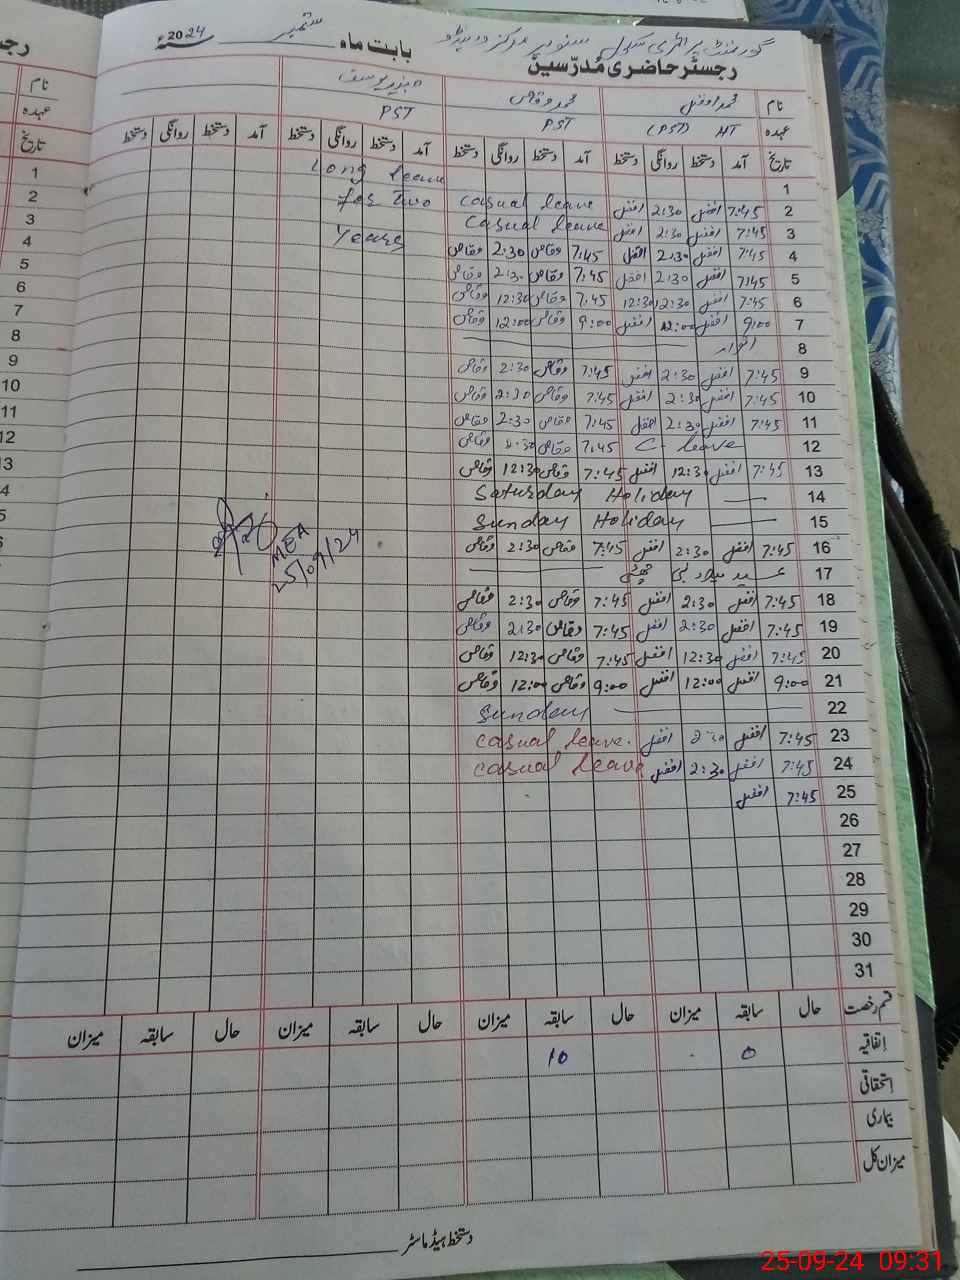 گورنمنٹ پرائمری سکول
بابت ماہ ستمبر سنہ 2024ء
رجسٹر حاضری مُدرّسین
نام محمد افضل محمد وقاص
عہدہ HT (PST) PST PST
تاریخ آمد دستخط روانگی دستخط آمد دستخط روانگی دستخط آمد دستخط روانگی دستخط آمد دستخط روانگی دستخط
1 Long leave
2 7:45 افضل 2:30 افضل Casual leave for Two
3 7:45 افضل 2:30 افضل Casual leave
4 7:45 افضل 2:30 افضل 7:45 وقاص 2:30 وقاص Years
5 7:45 افضل 2:30 افضل 7:45 وقاص 2:30 وقاص
6 7:45 افضل 12:30 12:30 7:45 وقاص 12:30 وقاص
7 9:00 افضل 12:00 افضل 9:00 وقاص 12:00 وقاص
8 اتوار
9 7:45 افضل 2:30 افضل 7:45 وقاص 2:30 وقاص
10 7:45 افضل 2:30 افضل 7:45 وقاص 2:30 وقاص
11 7:45 افضل 2:30 افضل 7:45 وقاص 2:30 وقاص
12 C- leave 7:45 وقاص 2:30 وقاص
13 7:45 افضل 12:30 افضل 7:45 وقاص 12:30 وقاص
14 Saturday Holiday
15 Sunday Holiday
16 7:45 افضل 2:30 افضل 7:45 وقاص 2:30 وقاص
17 عید میلاد نبی چھٹی
18 7:45 افضل 2:30 افضل 7:45 وقاص 2:30 وقاص
19 7:45 افضل 2:30 افضل 7:45 وقاص 2:30 وقاص
20 7:45 افضل 12:30 افضل 7:45 وقاص 12:30 وقاص
21 9:00 افضل 12:00 افضل 9:00 وقاص 12:00 وقاص
22 Sunday
23 7:45 افضل 2:30 افضل Casual leave.
24 7:45 افضل 2:30 افضل Casual leave
25 7:45 افضل
26
27
28
29
30
31
MEA
25/09/24
قسم رخصت حال سابقہ میزان حال سابقہ میزان حال سابقہ میزان حال سابقہ میزان
اتفاقیہ 0 10
استحقاقی
بیماری
میزان کل
دستخط ہیڈ ماسٹر
رجس
نام
عہدہ
تاریخ
1
2
3
4
5
6
7
8
9
10
11
12
13
25-09-24 09:31